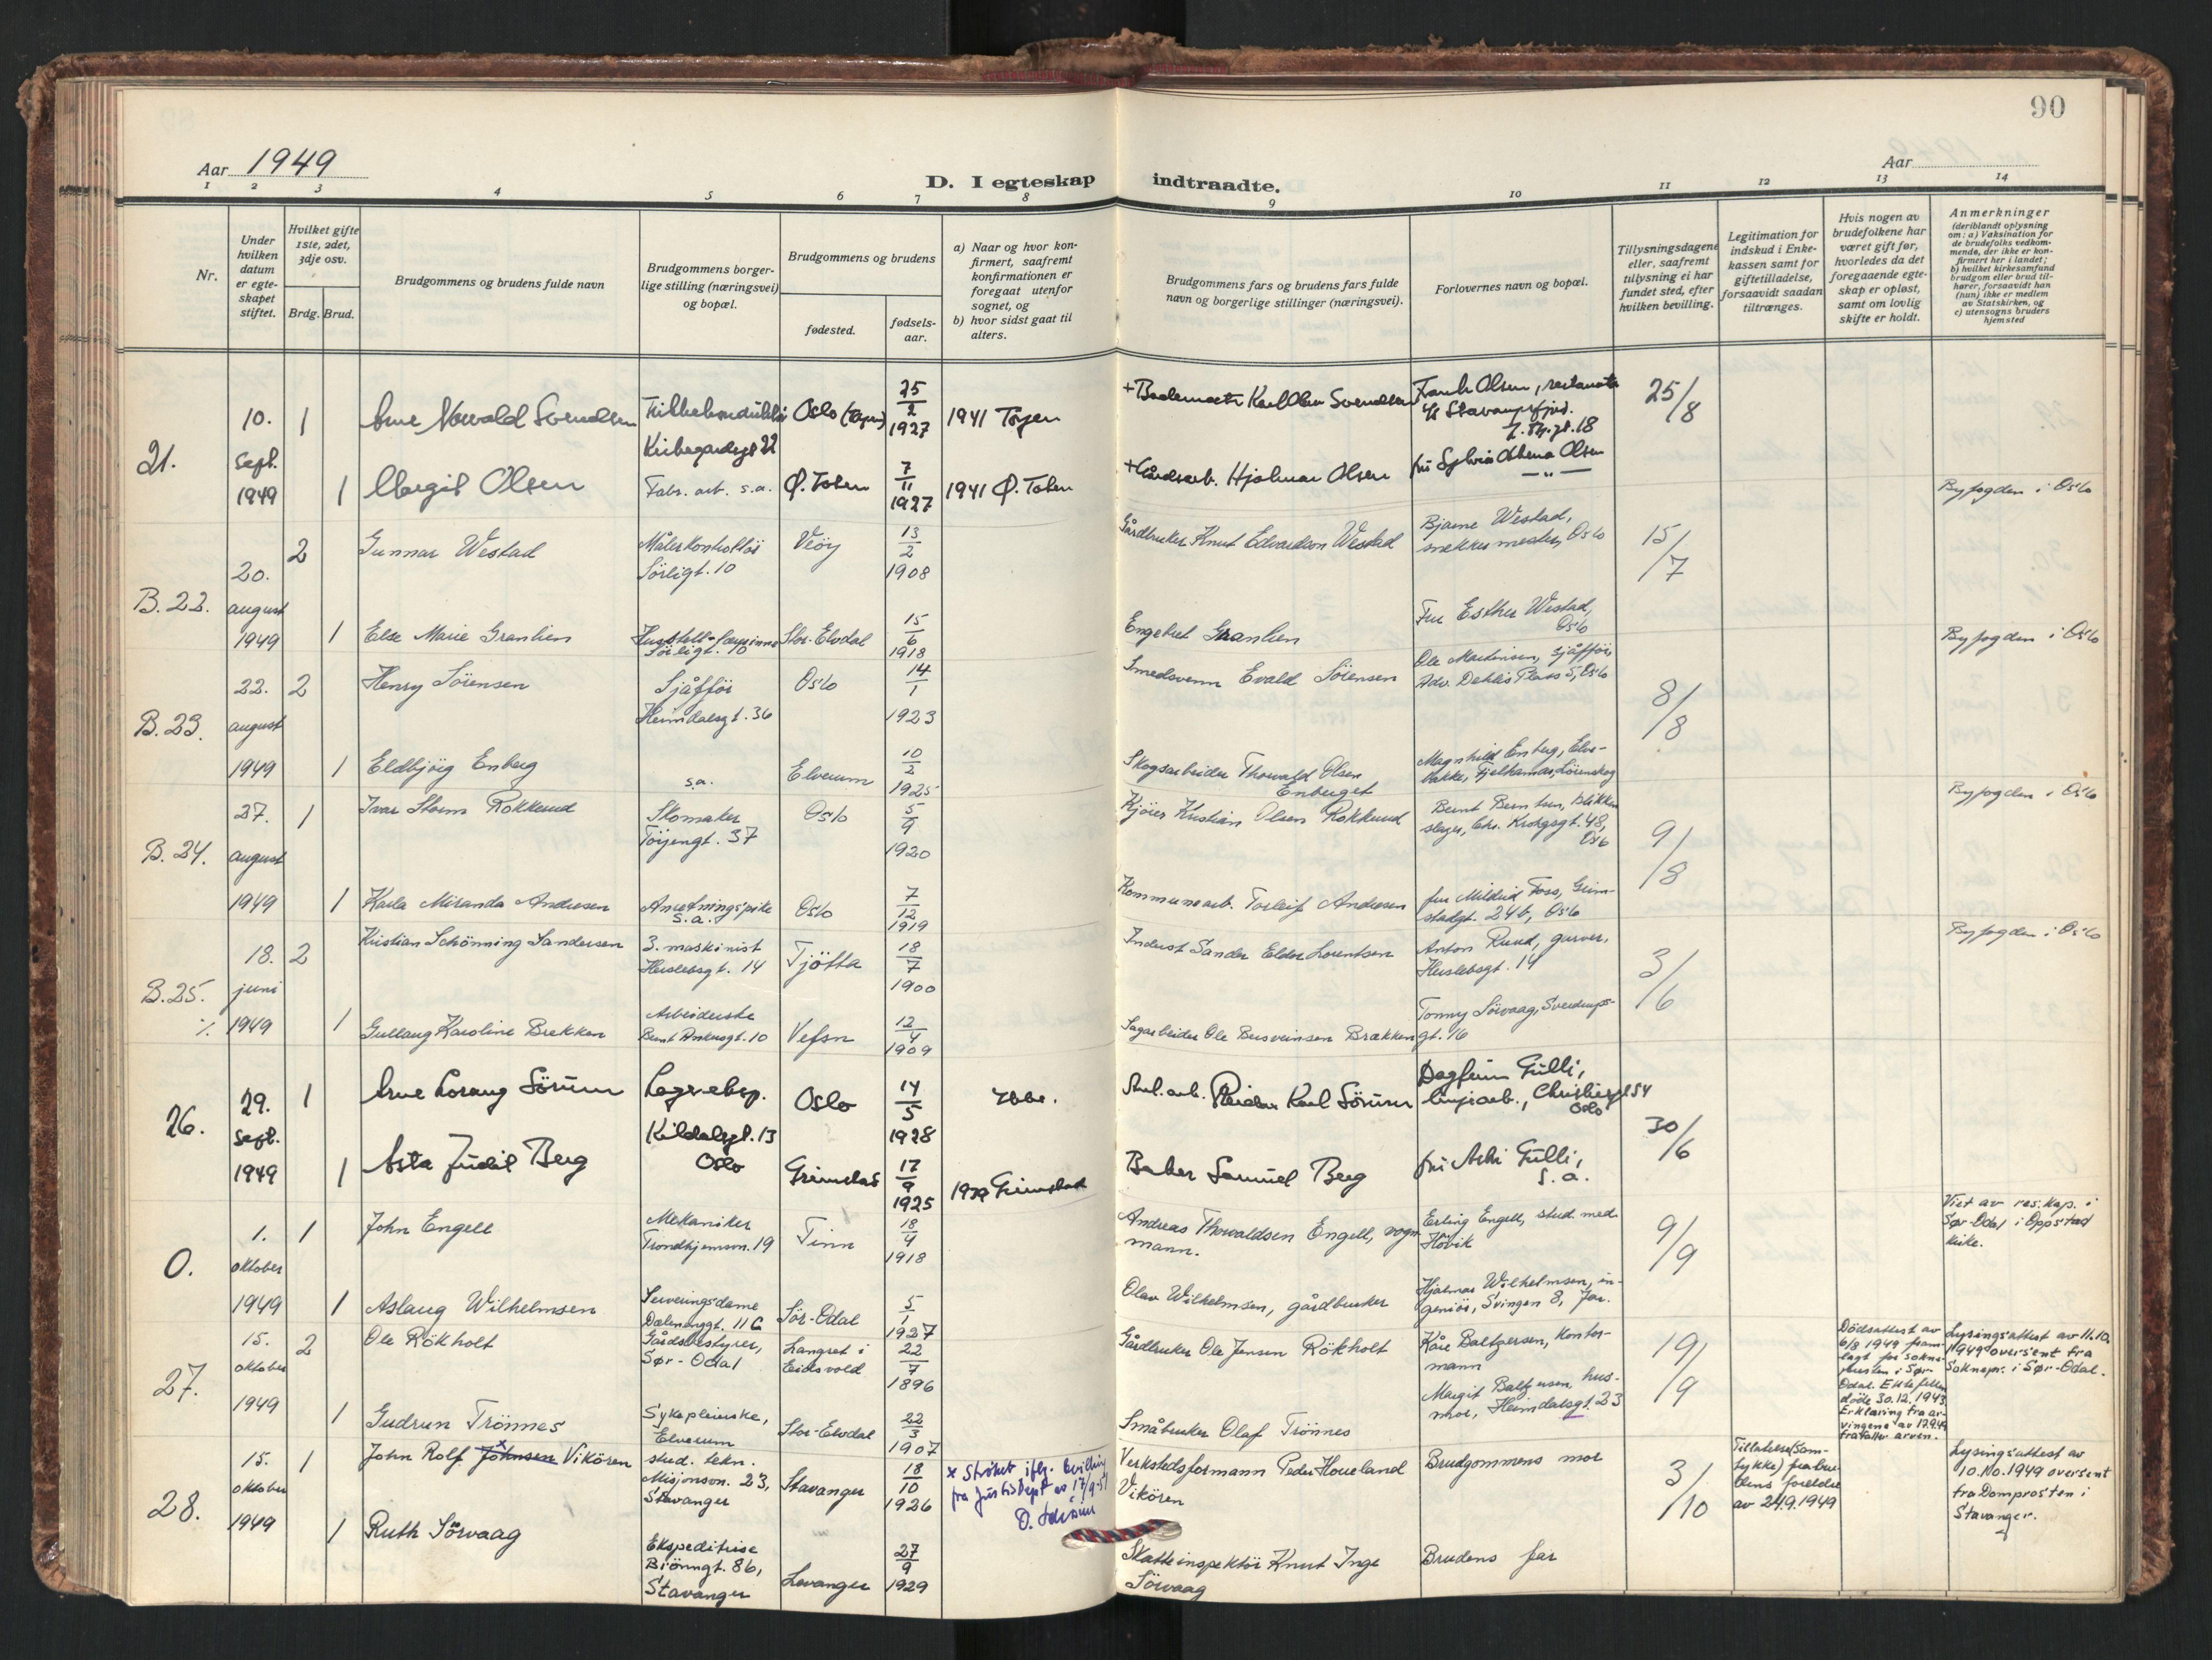 90
Aar 1949
Aar
D. I egteskap indtraadte.
1 2 3 4 5 6 7 8 9 10 11 12 13 14
Nr.
Under hvilken datum er egte-skapet stiftet.
Hvilket gifte 1ste, 2det, 3dje osv.
Brdg. Brud.
Brudgommens og brudens fulde navn
Brudgommens borger-lige stilling (næringsvei) og bopæl.
Brudgommens og brudens
fødested.
fødsels-aar.
a) Naar og hvor kon-firmert, saafremt konfirmationen er foregaat utenfor sognet, og
b) hvor sidst gaat til alters.
Brudgommens fars og brudens fars fulde navn og borgerlige stillinger (næringsvei).
Forlovernes navn og bopæl.
Tillysningsdagene eller, saafremt tillysning ei har fundet sted, efter hvilken bevilling.
Legitimation for indskud i Enke-kassen samt for giftetilladelse, forsaavidt saadan tiltrænges.
Hvis nogen av brudefolkene har været gift før, hvorledes da det foregaaende egte-skap er opløst, samt om lovlig skifte er holdt.
Anmerkninger
(deriblandt oplysning om: a) Vaksination for de brudefolks vedkom-mende, der ikke er kon-firmert her i landet;
b) hvilket kirkesamfund brudgom eller brud til-hører, forsaavidt han (hun) ikke er medlem av Statskirken, og
c) utensogns bruders hjemsted
21.
10. sept. 1949
1 Arne Norvald Svendsen
22
Oslo
25/2 1927
1941 Tøyen
Karl Olsen Svendsen
Frank Olsen,
25/8
1 Margit Olsen
Fabr. arb. s.a.
Ø. Toten
7/11 1927
1941 Ø. Toten
+ Gårdsarb. Hjalmar Olsen
fru Sylvia Olsen
— „ —
Byfogden i Oslo
B. 22.
20. august 1949
2 Gunnar Westad
Målerkontrollör
Sörligt. 10
Veöy
13/2 1908
Gårdbruker Knut Edvardson Westad
Bjarne Westad,
snekkermester, Oslo
15/7
1 Else Marie Granlien
Sörligt. 10
Stor-Elvdal
15/6 1918
Engebret Granlien
Fru Esther Westad,
Oslo
Byfogden i Oslo
B. 23.
22. august 1949
2 Henry Sörensen
Sjåfför
Heimdalsgt. 36
Oslo
14/1 1923
Smedsvenn Evald Sörensen
Ole Martinsen, sjåfför,
Adv. Dehlis Plass 5, Oslo
8/8
1 Eldbjörg Enberg
s.a.
Elverum
10/2 1925
Skogsarbeider Thorvald Olsen
Enberget
Magnhild Enberg, Elve-
bakke, Fjelhamar, Lörenskog
Byfogden i Oslo
B. 24.
27. august 1949
1 Ivar Storm Rokkerud
Skomaker
Töyengt. 37
Oslo
5/9 1920
Kjörer Kristian Olsen Rokkerud
Bernt Berntsen, blikken-
slager, Chr. Krohgsgt. 48,
Oslo
9/8
1 Karla Miranda Andresen
Anretningspike
s.a.
Oslo
7/12 1919
Kommunearb. Torleif Andresen
fru Mildrid Foss, Grim-
stadgt. 24b, Oslo
Byfogden i Oslo
B. 25.
18. juni 1949
2 Kristian Schönning Sandersen
3. maskinist
Herslebsgt. 14
Tjötta
18/7 1900
Indust Sander Eldor Lorentsen
Anton Ruud, garver,
Herslebsgt. 14
3/6
1 Gullaug Karoline Brekken
Arbeiderske
Bernt Ankersgt. 10
Vefsn
12/4 1909
Sagarbeider Ole Brækken
Tonny Sörvaag, Sverdrups-
gt. 16
26.
29. sept. 1949
1 Arne Lorang Sörum
Lagereksp.
13
Oslo
Oslo
14/5 1928
Reidar Karl Sörum
Dagfinn Gulli,
linjearb., 54
Oslo
30/6
1 Asta Judit Berg
Grimstad
17/9 1925
Grimstad
Baker Samuel Berg
fru Gulli,
s.a.
0.
1. oktober 1949
1 John Engell
Mekaniker
Trondhjemsvn. 19
Tinn
18/4 1918
Andreas Thorvaldsen Engell, vogn-
mann.
Erling Engell, stud. med.
Hövik
9/9
Viet av res. kap. i
Sør-Odal i Oppstad
kirke.
1 Aslaug Wilhelmsen
Serveringsdame
Dælenenggt. 11 C
Sör-Odal
5/1 1927
Olav Wilhelmsen, gårdbruker
Hjalmar Wilhelmsen, in-
geniör, Svingen 8, Jar.
27.
15. oktober 1949
2 Ole Rökholt
Gårdsbestyrer,
Sør-Odal
Langset i
Eidsvold
22/7 1896
Gårdbruker Ole Jensen Rökholt
Kåre Baltzersen, kontor-
mann
19/9
Dödsattest av
6/8 1949 fram-
lagt for sokne-
presten i Sør-
Odal. Ektefellen
døde 30.12.1943.
Erklæring fra ar-
vingene av 17.9.49
frafaller arven.
Lysingsattest av 11.10.
1949 oversent fra
Soknepr. i Sør-Odal.
1 Gudrun Trönnes
Sykepleierske,
Elverum
Stor-Elvdal
22/3 1907
Småbruker Olaf Trönnes
Margit Baltzersen, hus-
mor, Heimdalsgt. 23
28.
15. oktober 1949
1 John Rolf Johnsen Vikören
stud. tekn.
Misjonsvn. 23,
Stavanger
Stavanger
18/10 1926
x Strøket iflg. bevilling
fra Justisdept av 17/9-51
Verkstedsformann Peder Houeland
Vikören
Brudgommens mor
3/10
Tillatelse (Sam-
tykke) fra bru-
dens foreldre
av 24.9.1949
Lysingsattest av
10.10.1949 oversent
fra Domprosten i
Stavanger.
1 Ruth Sörvaag
Ekspeditrise
Biörnngt. 86,
Stavanger
Levanger
27/9 1929
Skatteinspektör Knut Inge
Sörvaag
Brudens far